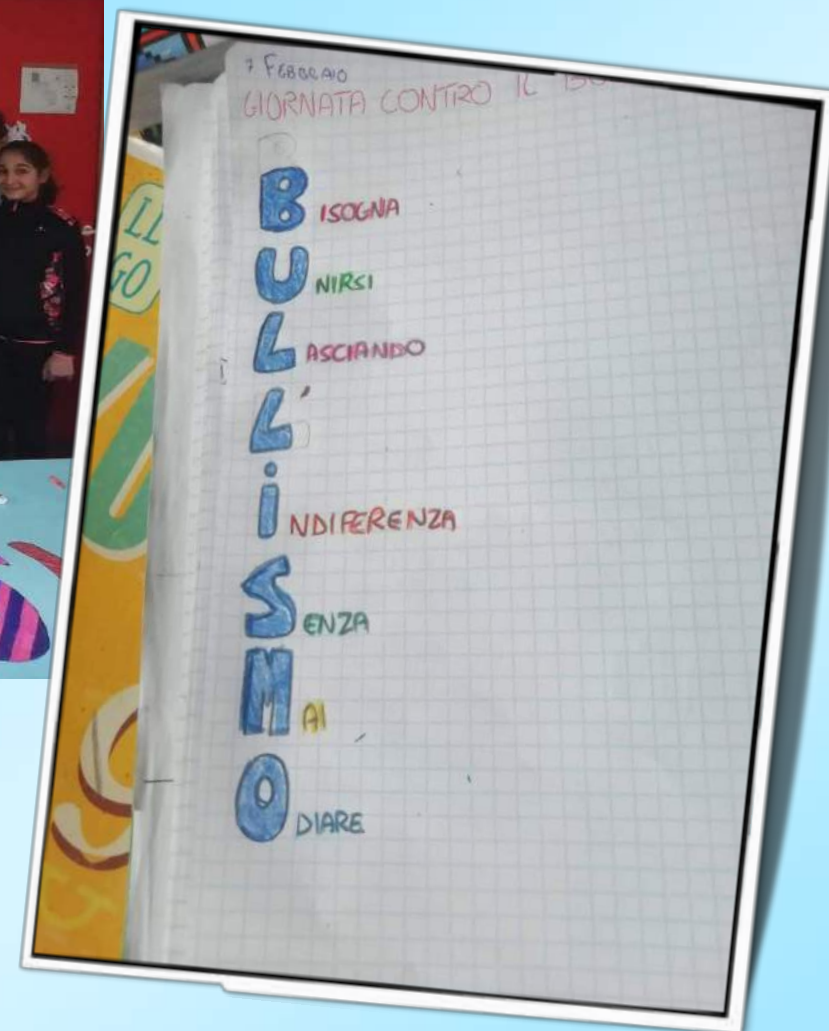 7 FEBBRAIO
GIORNATA CONTRO IL
BISOGNA
UNIRSI
LASCIANDO
L'
INDIFERENZA
SENZA
MAI
ODIARE
IL
GO